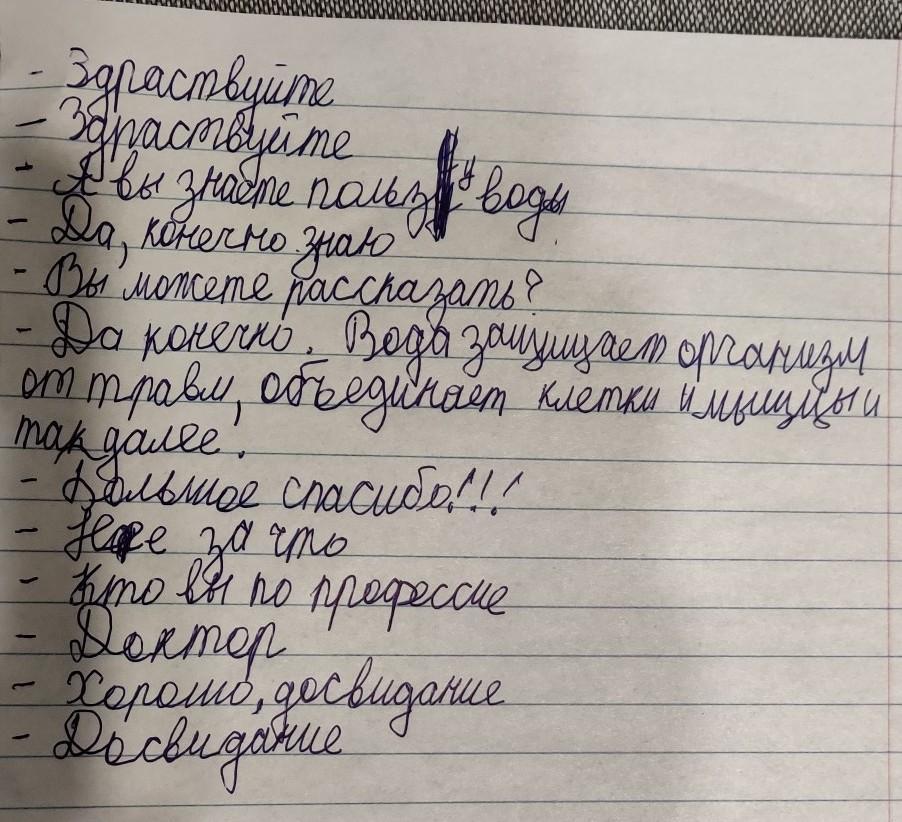 - Здраствуйте
- Здраствуйте
- А вы знаете пользу воды
- Да, конечно знаю
- Вы можете рассказать?
- Да конечно. Вода защищает организм
от травм, объединает клетки и мышцы и
так далее.
- Большое спасибо!!!
- Не за что
- Кто вы по професcие
- Доктор
- Хорошо, досвидание
- Досвидание